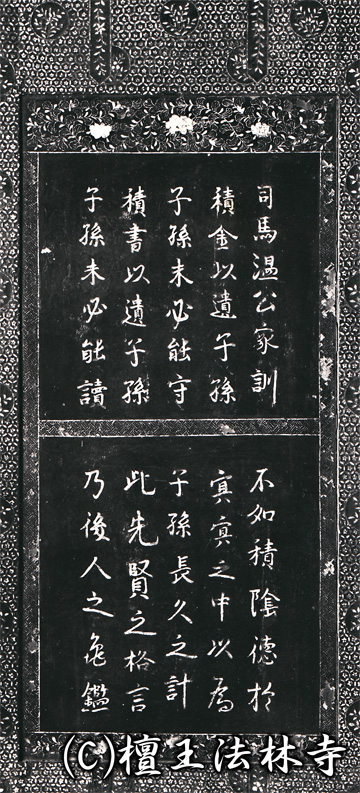 司馬温公家訓
積金以遺子孫
子孫未必能守
積書以遺子孫
子孫未必能讀
不如積陰德於
冥冥之中以為
子孫長久之計
此先賢之格言
乃後人之龜鑑
(C)檀王法林寺